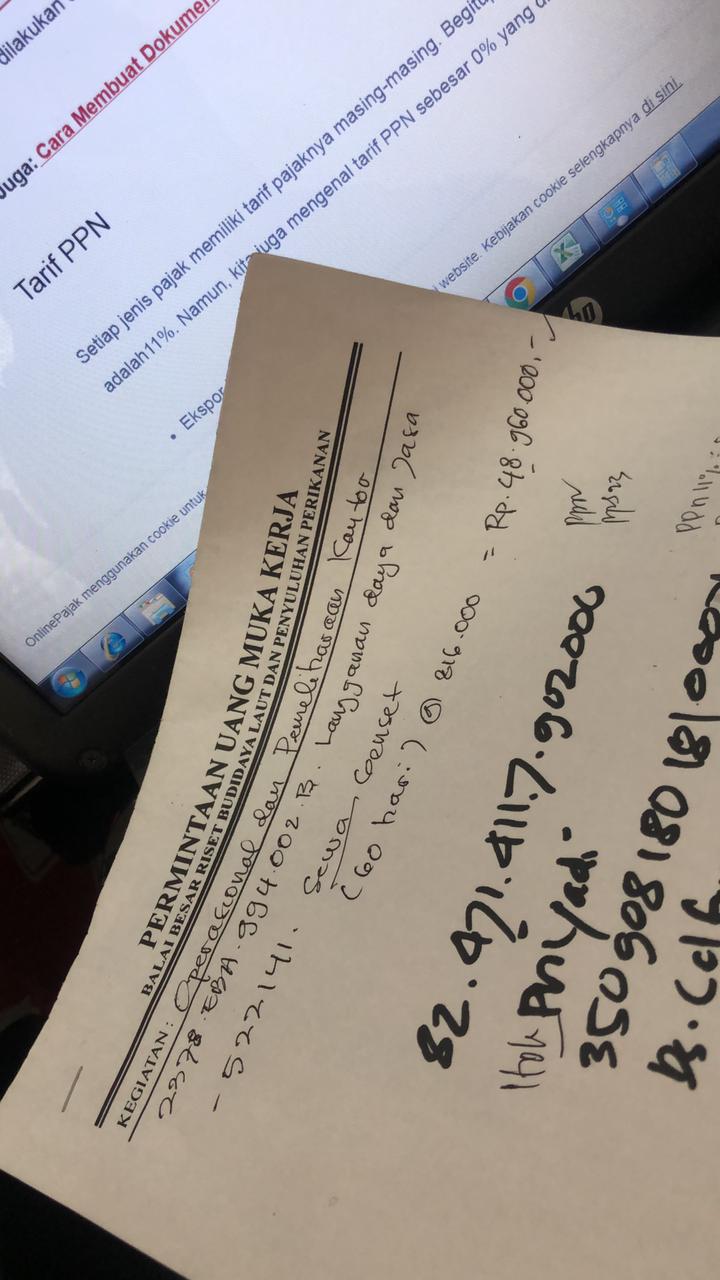 dilakukan
Juga: Cara Membuat Dokumen
Tarif PPN
Setiap jenis pajak memiliki tarif pajaknya masing-masing. Begitu
adalah11%. Namun, kita juga mengenal tarif PPN sebesar 0% yang
• Ekspor
OnlinePajak menggunakan cookie untuk
website. Kebijakan cookie selengkapnya di sini.
hp
PERMINTAAN UANG MUKA KERJA
BALAI BESAR RISET BUDIDAYA LAUT DAN PENYULUHAN PERIKANAN
KEGIATAN: Operasional dan Pemeliharaan Kantor
2378.EBA.994.002.B. Langganan daya dan Jasa
- 522141. Sewa Genset
(60 hari) @ 816.000 = Rp. 48.960.000,-
82.471.411.7.902000
PPN
PPS23
Priyadi
PPN 11%
350908180181000
Ds.